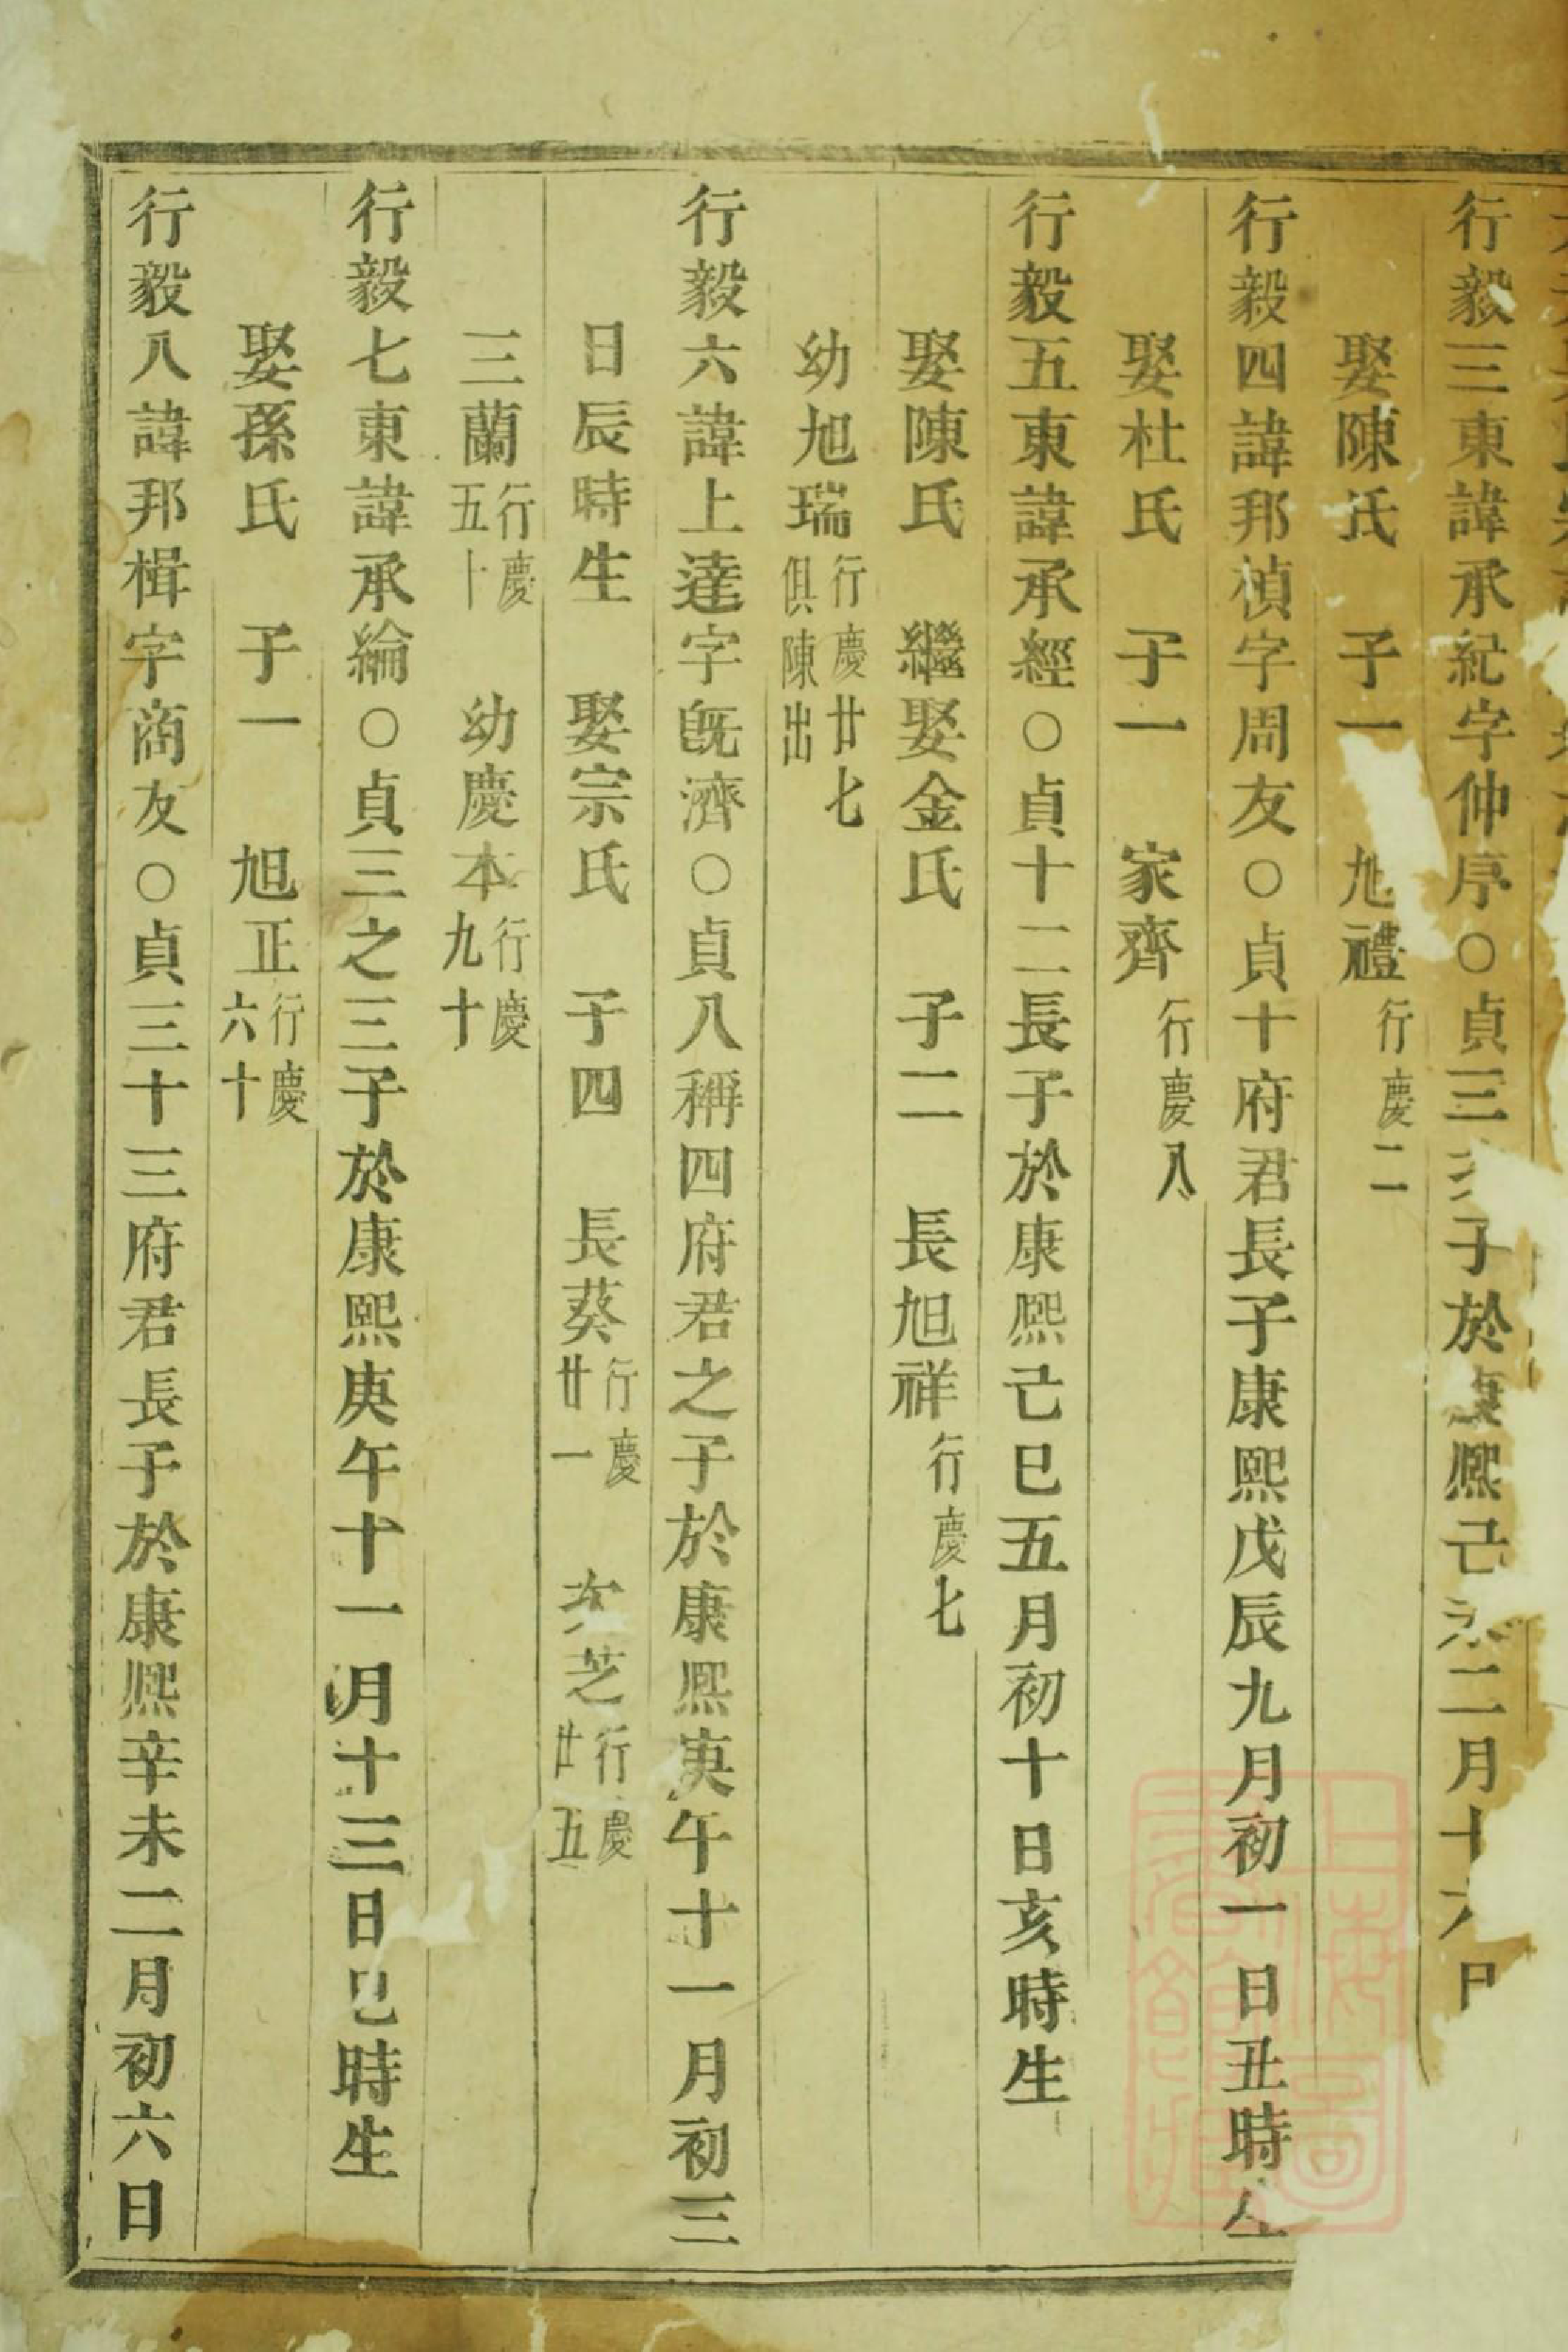 行毅三東諱承紀字仲序○貞三子於康熙己二月十六日
娶陳氏　子一　旭禮行慶二
行毅四諱邦楨字周友○貞十府君長子康熙戊辰九月初一日丑時生
娶杜氏　子一　家齊行慶八
行毅五東諱承經○貞十二長子於康熙己巳五月初十日亥時生
娶陳氏　繼娶金氏　子二　長旭祥行慶七
幼旭瑞行慶廿七俱陳出
行毅六諱上達字旣濟○貞八稱四府君之子於康熙庚午十一月初三
日辰時生　娶宗氏　子四　長葵行慶廿一　次芝行慶廿五
三蘭行慶五十　幼慶本行慶九十
行毅七東諱承綸○貞三之三子於康熙庚午十一月十三日巳時生
娶孫氏　子一　旭正行慶六十
行毅八諱邦楫字商友○貞三十三府君長子於康熙辛未二月初六日
上海圖書館藏